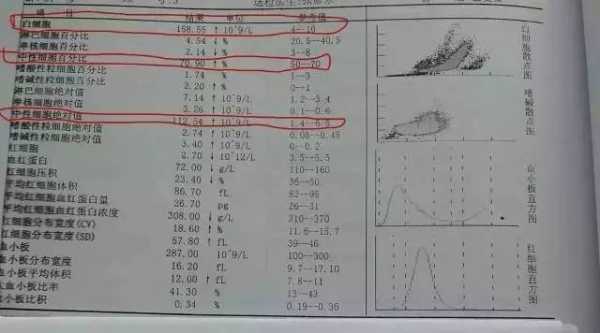 结果 单位 参考值
白细胞 158.55 ↑ 10^9/L 4--10
淋巴细胞百分比 4.54 ↓ % 20.5--40.5
单核细胞百分比 2.14 ↓ % 3--8
中性细胞百分比 70.90 ↑ % 50--70
嗜酸性粒细胞百分比 1.74 % 1--3
嗜碱性粒细胞百分比 2.20 ↑ % 0--1
淋巴细胞绝对值 7.14 ↑ 10^9/L 1.2--3.4
单核细胞绝对值 3.26 ↑ 10^9/L 0.1--0.6
中性细胞绝对值 112.54 ↑ 10^9/L 1.4--6.5
嗜酸性粒细胞绝对值 2.74 ↑ 10^9/L 0.05--0.45
嗜碱性粒细胞绝对值 3.40 ↑ 10^9/L 0--0.2
红细胞 2.70 ↓ 10^12/L 3.5--5.5
血红蛋白 72.00 ↓ g/L 110--160
红细胞压积 23.40 ↓ % 36--50
平均红细胞体积 86.70 fL 82--95
平均红细胞血红蛋白量 26.70 pg 26--31
平均红细胞血红蛋白浓度 308.00 ↓ g/L 310--370
红细胞分布宽度(CV) 18.60 ↑ % 11.5--15.7
红细胞分布宽度(SD) 57.80 ↑ fL 39--46
血小板 287.00 10^9/L 100--300
血小板分布宽度 16.20 fL 9.7--17.10
血小板平均体积 12.00 ↑ fL 7.8--11
大血小板比率 41.30 % 13--43
血小板比积 0.34 % 0.19--0.36
白细胞散点图
嗜碱散点图
血小板直方图
红细胞直方图